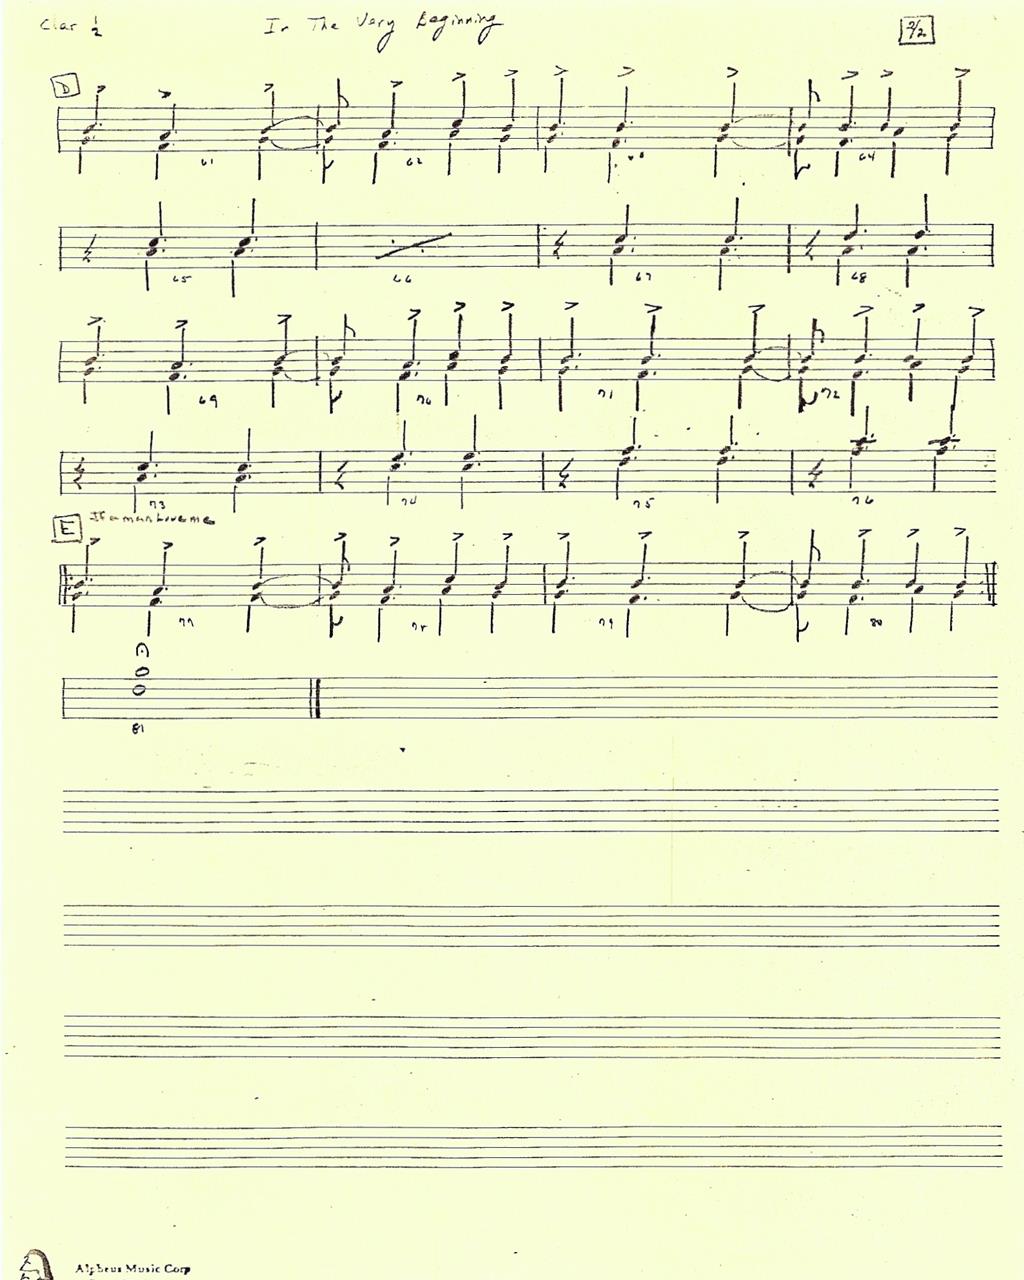 Clar 1/2 In The Very Beginning 2/2
D
61 62 64
65 66 67 68
69 70 71 72
73 74 75 76
E If a man Love me
77 78 79 80
81
Alpheus Music Corp